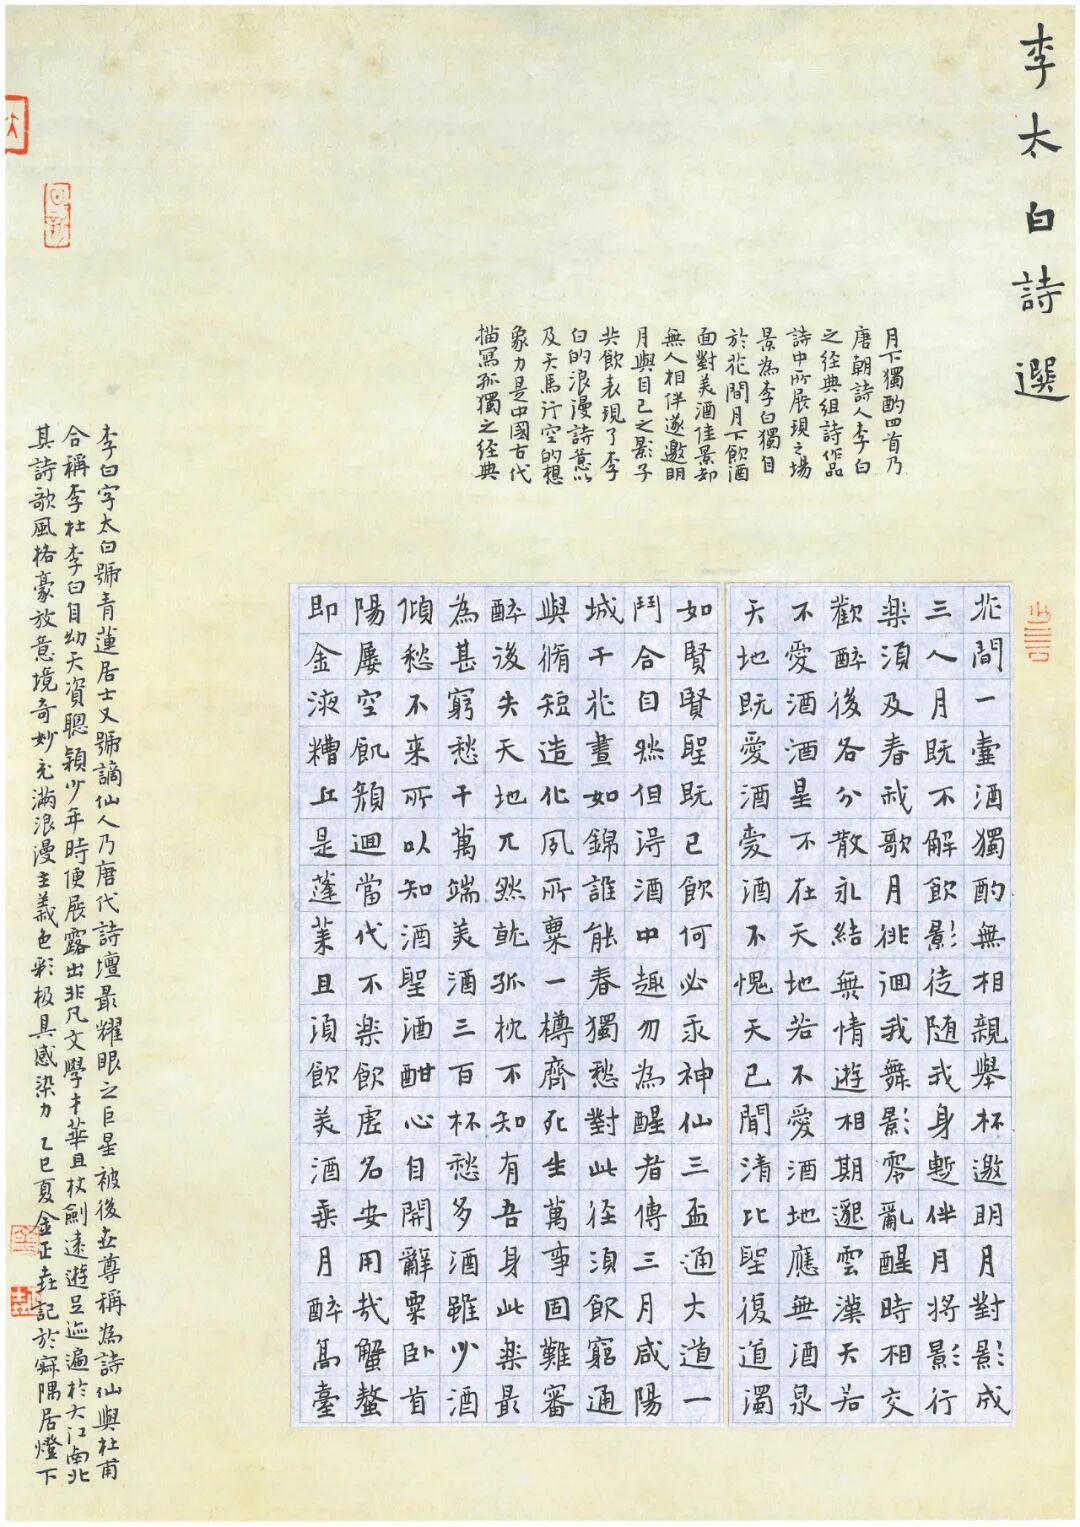 李太白詩選
月下獨酌四首乃
唐朝詩人李白
之經典組詩作品
詩中所展現之場
景為李白獨自
於花間月下飲酒
面對美酒佳景卻
無人相伴遂邀明
月與自己之影子
共飲表現了李
白的浪漫詩意以
及天馬行空的想
象力是中國古代
描寫孤獨之經典
花間一壷酒獨酌無相親舉杯邀明月對影成
三人月既不解飲影徒随我身暫伴月將影行
樂須及春我歌月徘徊我舞影零亂醒時相交
歡醉後各分散永結無情遊相期邈雲漢天若
不愛酒酒星不在天地若不愛酒地應無酒泉
天地既愛酒愛酒不愧天已聞清比聖復道濁
如賢賢聖既已飲何必求神仙三盃通大道一
鬥合自然但得酒中趣勿為醒者傳三月咸陽
城千花晝如錦誰能春獨愁對此徑須飲窮通
與脩短造化夙所稟一樽齊死生萬事固難審
醉後失天地兀然就孤枕不知有吾身此樂最
為甚窮愁千萬端美酒三百杯愁多酒雖少酒
傾愁不來所以知酒聖酒酣心自開辭粟臥首
陽屢空飢顏迴當代不樂飲虛名安用哉蟹螯
即金液糟丘是蓬萊且須飲美酒乘月醉高臺
李白字太白號青蓮居士又號謫仙人乃唐代詩壇最耀眼之巨星被後世尊稱為詩仙與杜甫
合稱李杜李白自幼天資聰穎少年時便展露出非凡文學才華且杖劍遠遊足迹遍於大江南北
其詩歌風格豪放意境奇妙充滿浪漫主義色彩極具感染力 乙巳夏金正垚記於寐隅居燈下